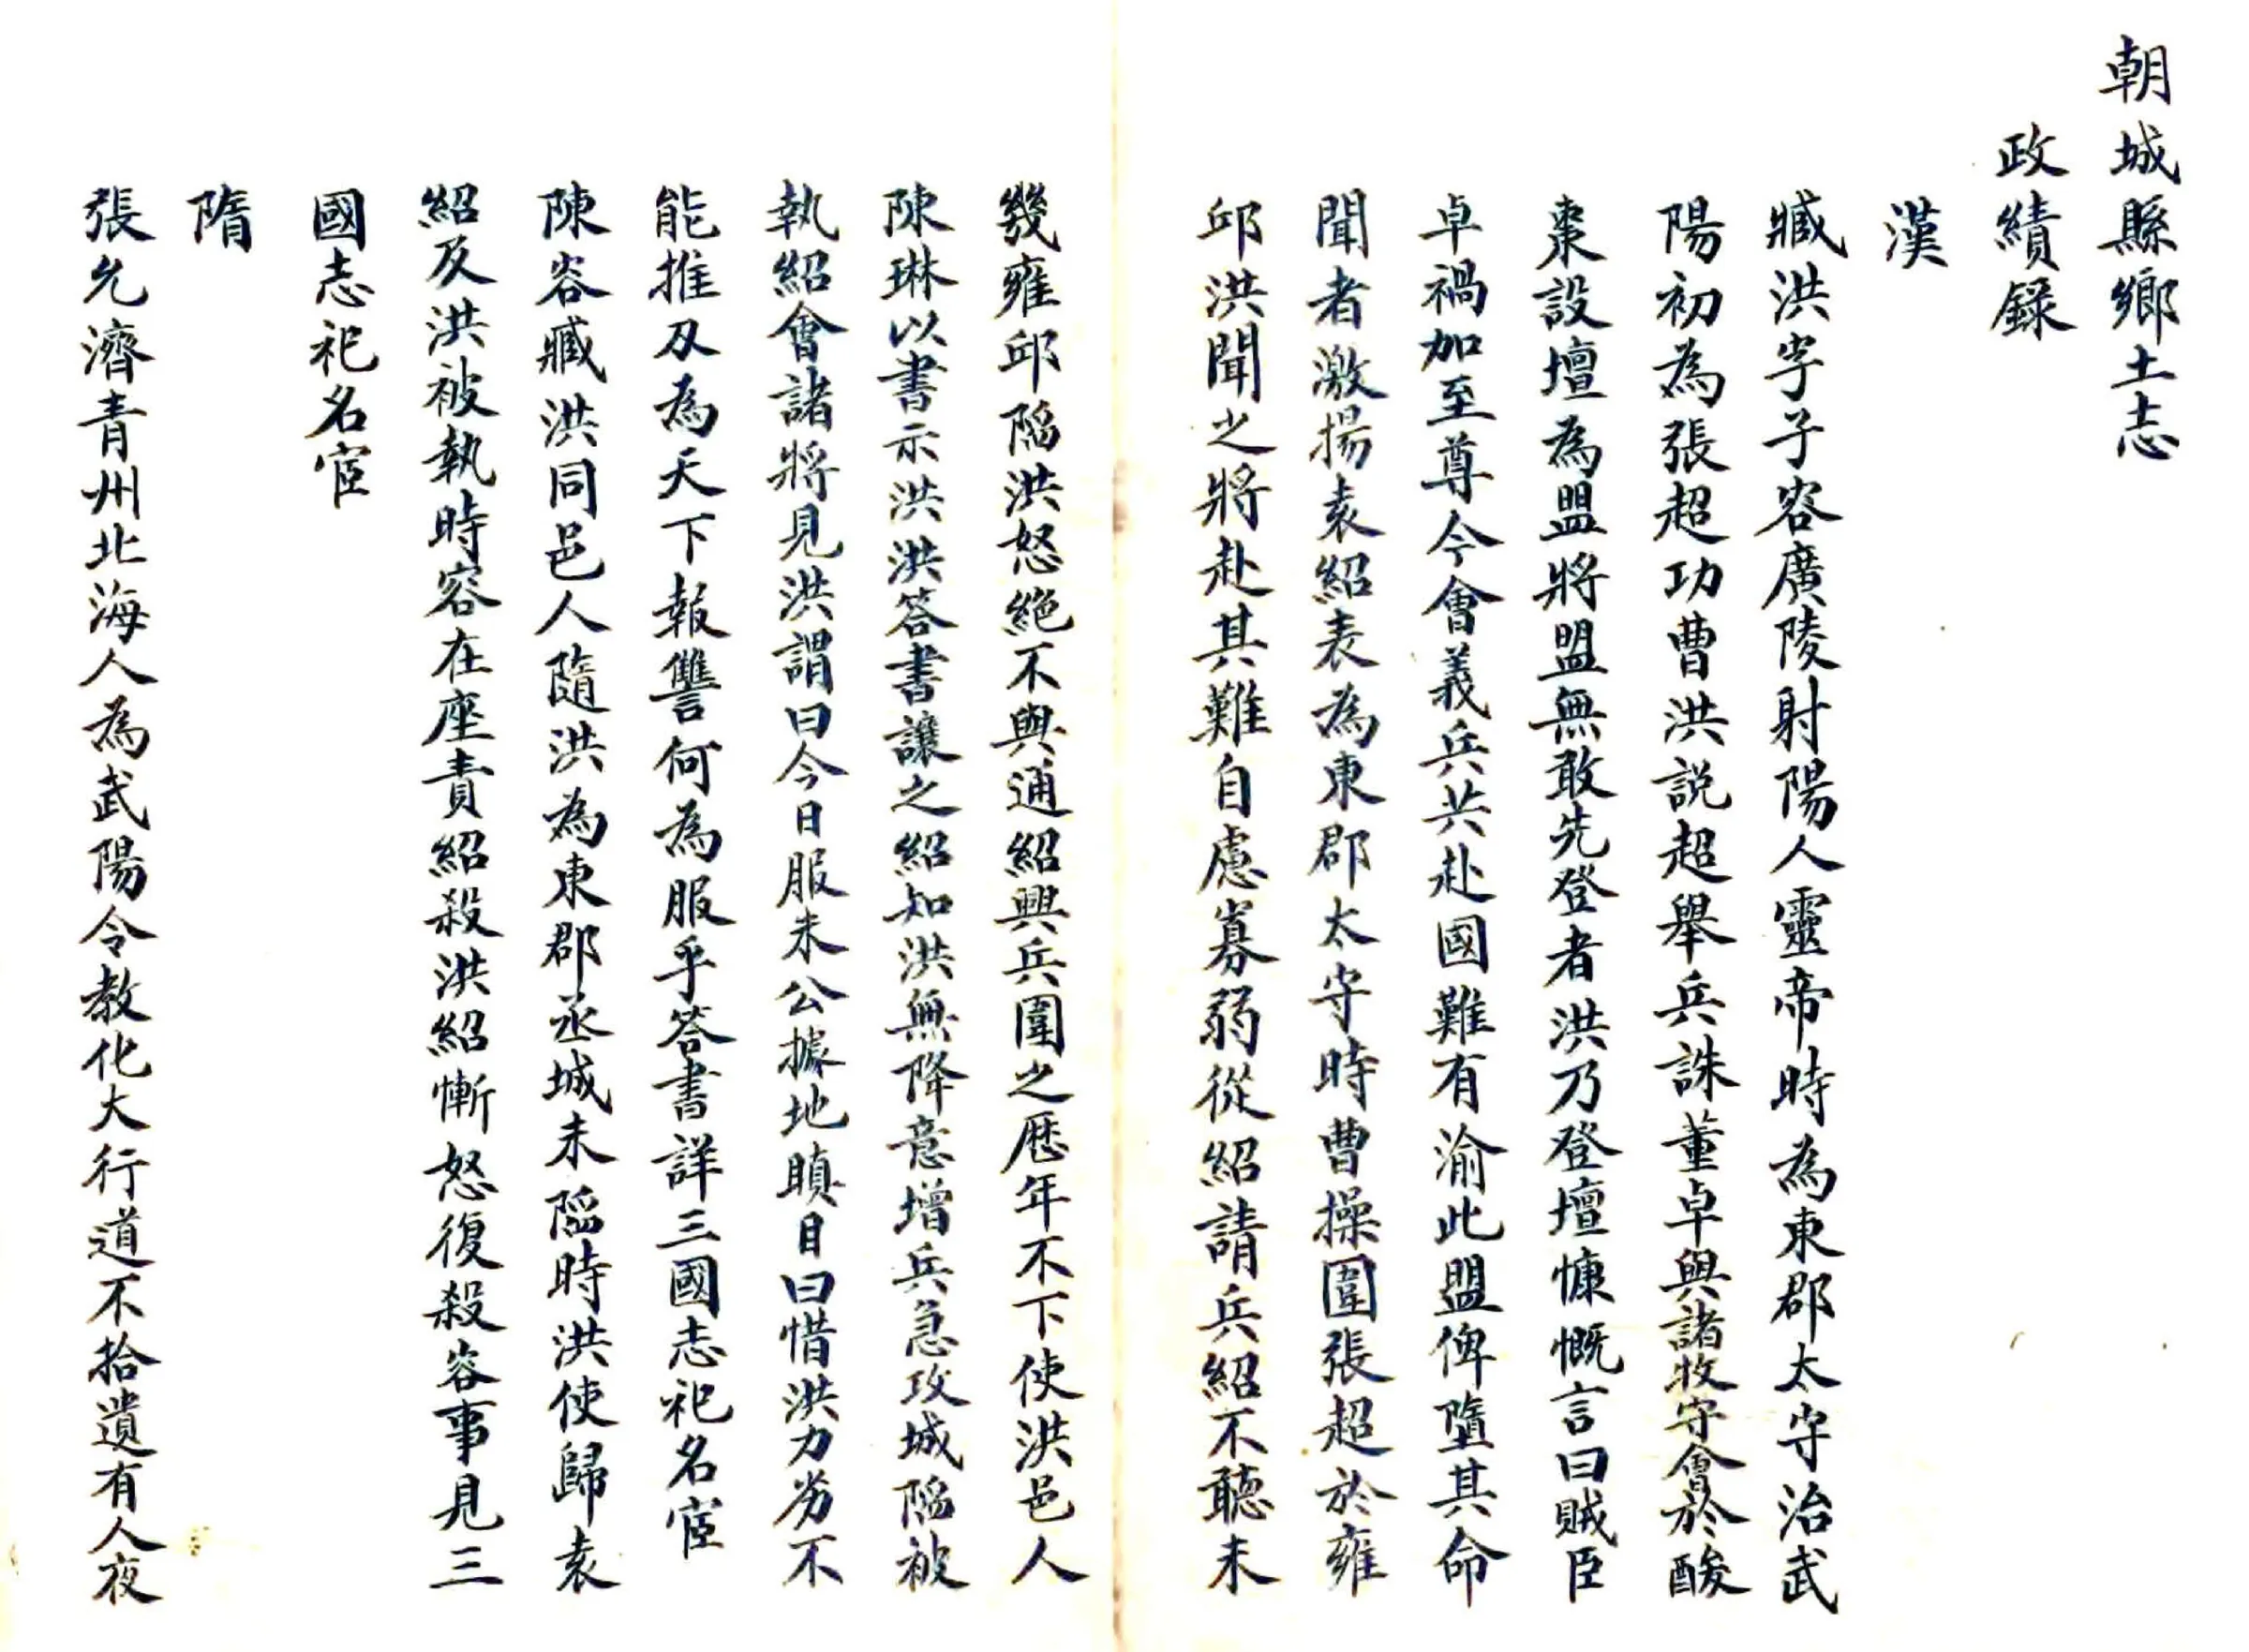 朝城縣鄉土志
政績錄
漢
臧洪字子容廣陵射陽人靈帝時為東郡太守治武
陽初為張超功曹洪說超舉兵誅董卓與諸牧守會於酸
棗設壇為盟將盟無敢先登者洪乃登壇慷慨言曰賊臣
卓禍加至尊今會義兵共赴國難有渝此盟俾墮其命
聞者激揚袁紹表為東郡太守時曹操圍張超於雍
邱洪聞之將赴其難自慮寡弱從紹請兵紹不聽未
幾雍邱陷洪怒絶不與通紹興兵圍之歷年不下使洪邑人
陳琳以書示洪洪答書讓之紹知洪無降意增兵急攻城陷被
執紹會諸將見洪謂曰今日服未公據地瞋目曰惜洪力劣不
能推刃為天下報讐何為服乎答書詳三國志祀名宦
陳容臧洪同邑人隨洪為東郡丞城未陷時洪使歸袁
紹及洪被執時容在座責紹殺洪紹慚怒復殺容事見三
國志祀名宦
隋
張允濟青州北海人為武陽令教化大行道不拾遺有人夜